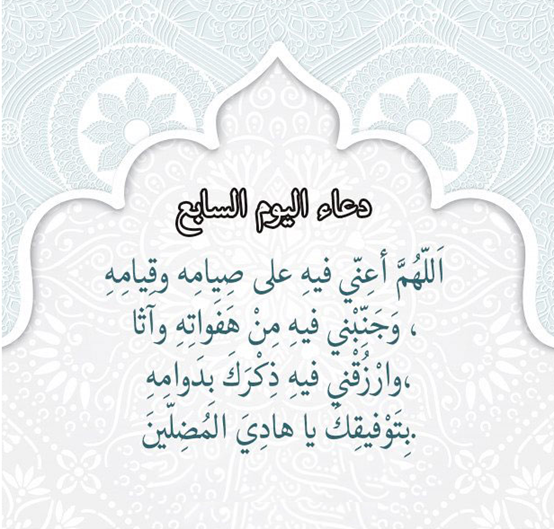 دعاء اليوم السابع
اَللّهُمَّ أعِنّي فيهِ على صِيامِه وقِيامِهِ
، وَجَنِّبْني فيهِ مِنْ هَفَواتِهِ وآثا
،وارْزُقْني فيهِ ذِكْرَكَ بِدَوامِهِ
.بِتَوْفيقِكَ يا هادِيَ المُضِلّينَ